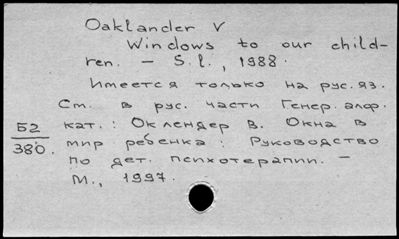 Oaklander V
Windows to our child-
ren. - S.l., 1988.
Имеется только на рус. яз.
См. в рус. части Генер. алф.
Б2 кат.: Оклендер В. Окна в
380. мир ребенка: Руководство
по дет. психотерапии. -
М., 1997.